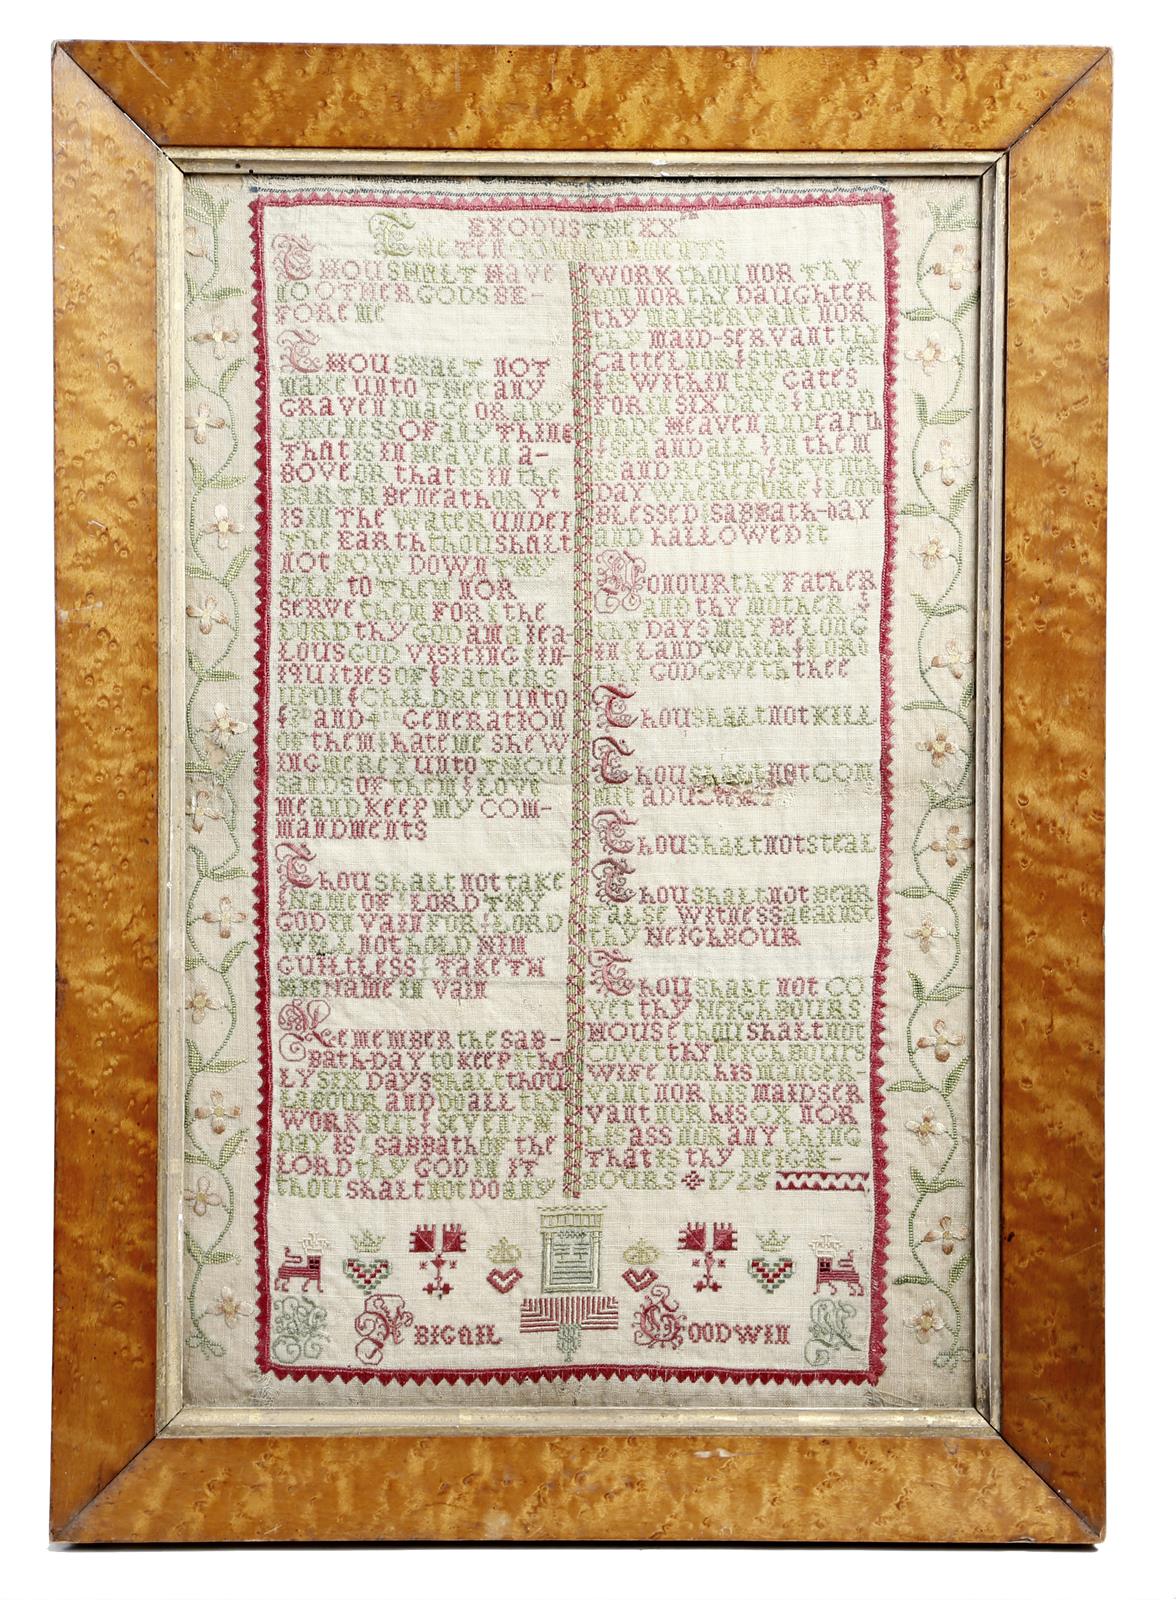 EXODUS THE XX
THE TEN COMMANDMENTS
THOU SHALT HAVE
NO OTHER GODS BE-
FORE ME
THOU SHALT NOT
MAKE UNTO THEE ANY
GRAVEN IMAGE OR ANY
LIKENESS OF ANY THING
THAT IS IN HEAVEN A-
BOVE OR THAT IS IN THE
EARTH BENEATH OR Yt
IS IN THE WATER UNDER
THE EARTH THOU SHALT
NOT BOW DOWN THY
SELF TO THEM NOR
SERVE THEM FOR I THE
LORD THY GOD AM A IEA-
LOUS GOD VISITING IN-
IQUITIES OF FATHERS
UPON CHILDREN UNTO
3d AND 4th GENERATION
OF THEM HATE ME SHEW
ING MERCY UNTO THOU
SANDS OF THEM LOVE
ME AND KEEP MY COM-
MANDMENTS
THOU SHALT NOT TAKE
NAME OF LORD THY
GOD IN VAIN FOR LORD
WILL NOT HOLD HIM
GUILTLESS TAKETH
HIS NAME IN VAIN
REMEMBER THE SAB-
BATH-DAY TO KEEP IT HO
LY SIX DAYS SHALT THOU
LABOUR AND DO ALL THY
WORK BUT SEVENTH
DAY IS SABBATH OF THE
LORD THY GOD IN IT
THOU SHALT NOT DO ANY
WORK THOU NOR THY
SON NOR THY DAUGHTER
THY MAN-SERVANT NOR
THY MAID-SERVANT THY
CATTEL NOR STRANGER
IS WITHIN THY GATES
FOR IN SIX DAYS LORD
MADE HEAVEN AND EARTH
SEA AND ALL IN THEM
IS AND RESTED SEVENTH
DAY WHEREFORE LORD
BLESSED SABBATH-DAY
AND HALLOWED IT
HONOUR THY FATHER
AND THY MOTHER
THY DAYS MAY BE LONG
IN LAND WHICH LORD
THY GOD GIVETH THEE
THOU SHALT NOT KILL
THOU SHALT NOT COM
MIT
THOU SHALT NOT STEAL
THOU SHALT NOT BEAR
FALSE WITNESS AGAINST
THY NEIGHBOUR
THOU SHALT NOT CO
VET THY NEIGHBOURS
HOUSE THOU SHALT NOT
COVET THY NEIGHBOURS
WIFE NOR HIS MANSER-
VANT NOR HIS MAIDSER
VANT NOR HIS OX NOR
HIS ASS NOR ANY THING
THAT IS THY NEIGH-
BOURS 1725
ABIGAIL GOODWIN